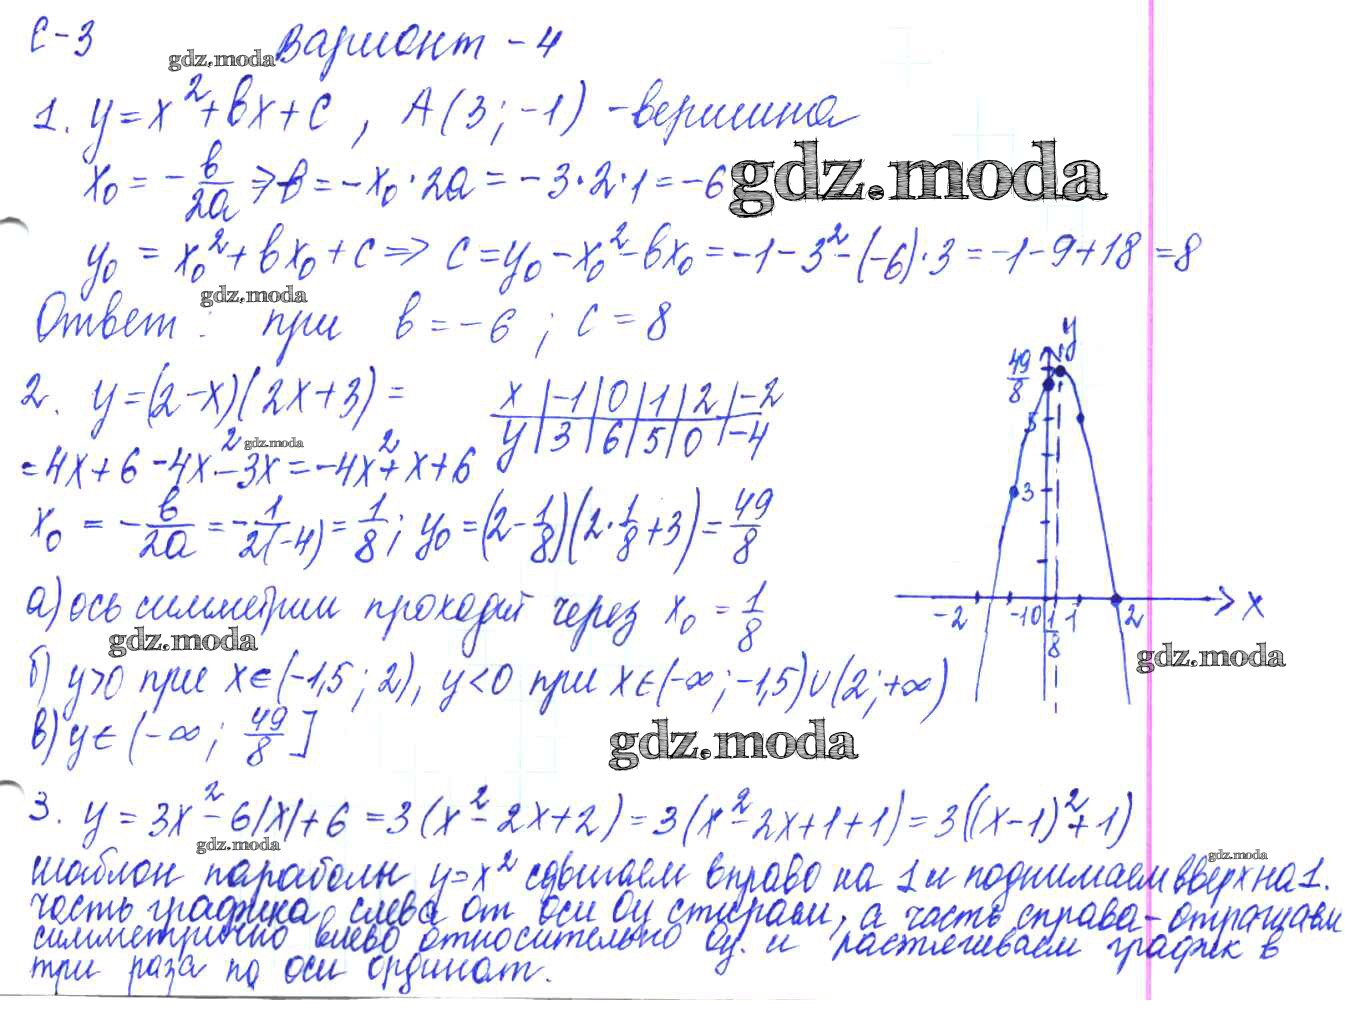 С-3 Вариант - 4
gdz.moda
1. y = x² + bx + c , A (3 ; -1) - вершина
x₀ = - b/2a => b = -x₀ · 2a = -3 · 2 · 1 = -6
gdz.moda
y₀ = x₀² + bx₀ + c => c = y₀ - x₀² - bx₀ = -1 - 3² - (-6) · 3 = -1 - 9 + 18 = 8
gdz.moda
Ответ : при b = -6 ; c = 8
2. y = (2 - x)(2x + 3) =
= 4x + 6 - 4x² - 3x = -4x² + x + 6
gdz.moda
x | -1 | 0 | 1 | 2 | -2
y | 3 | 6 | 5 | 0 | -4
x₀ = - b/2a = - 1/2(-4) = 1/8 ; y₀ = (2 - 1/8)(2 · 1/8 + 3) = 49/8
а) ось симметрии проходит через x₀ = 1/8
gdz.moda
б) y > 0 при x ∈ (-1,5 ; 2), y < 0 при x ∈ (-∞ ; -1,5) ∪ (2 ; +∞)
в) y ∈ (-∞ ; 49/8]
gdz.moda
y
49/8
5
3
-2 -1 0 1/8 1 2 x
gdz.moda
3. y = 3x² - 6|x| + 6 = 3(x² - 2x + 2) = 3(x² - 2x + 1 + 1) = 3((x - 1)² + 1)
gdz.moda
gdz.moda
шаблон параболы y = x² сдвигаем вправо на 1 и поднимаем вверх на 1.
часть графика слева от оси Oy стираем, а часть справа - отражаем
симметрично влево относительно Oy. и растягиваем график в
три раза по оси ординат.